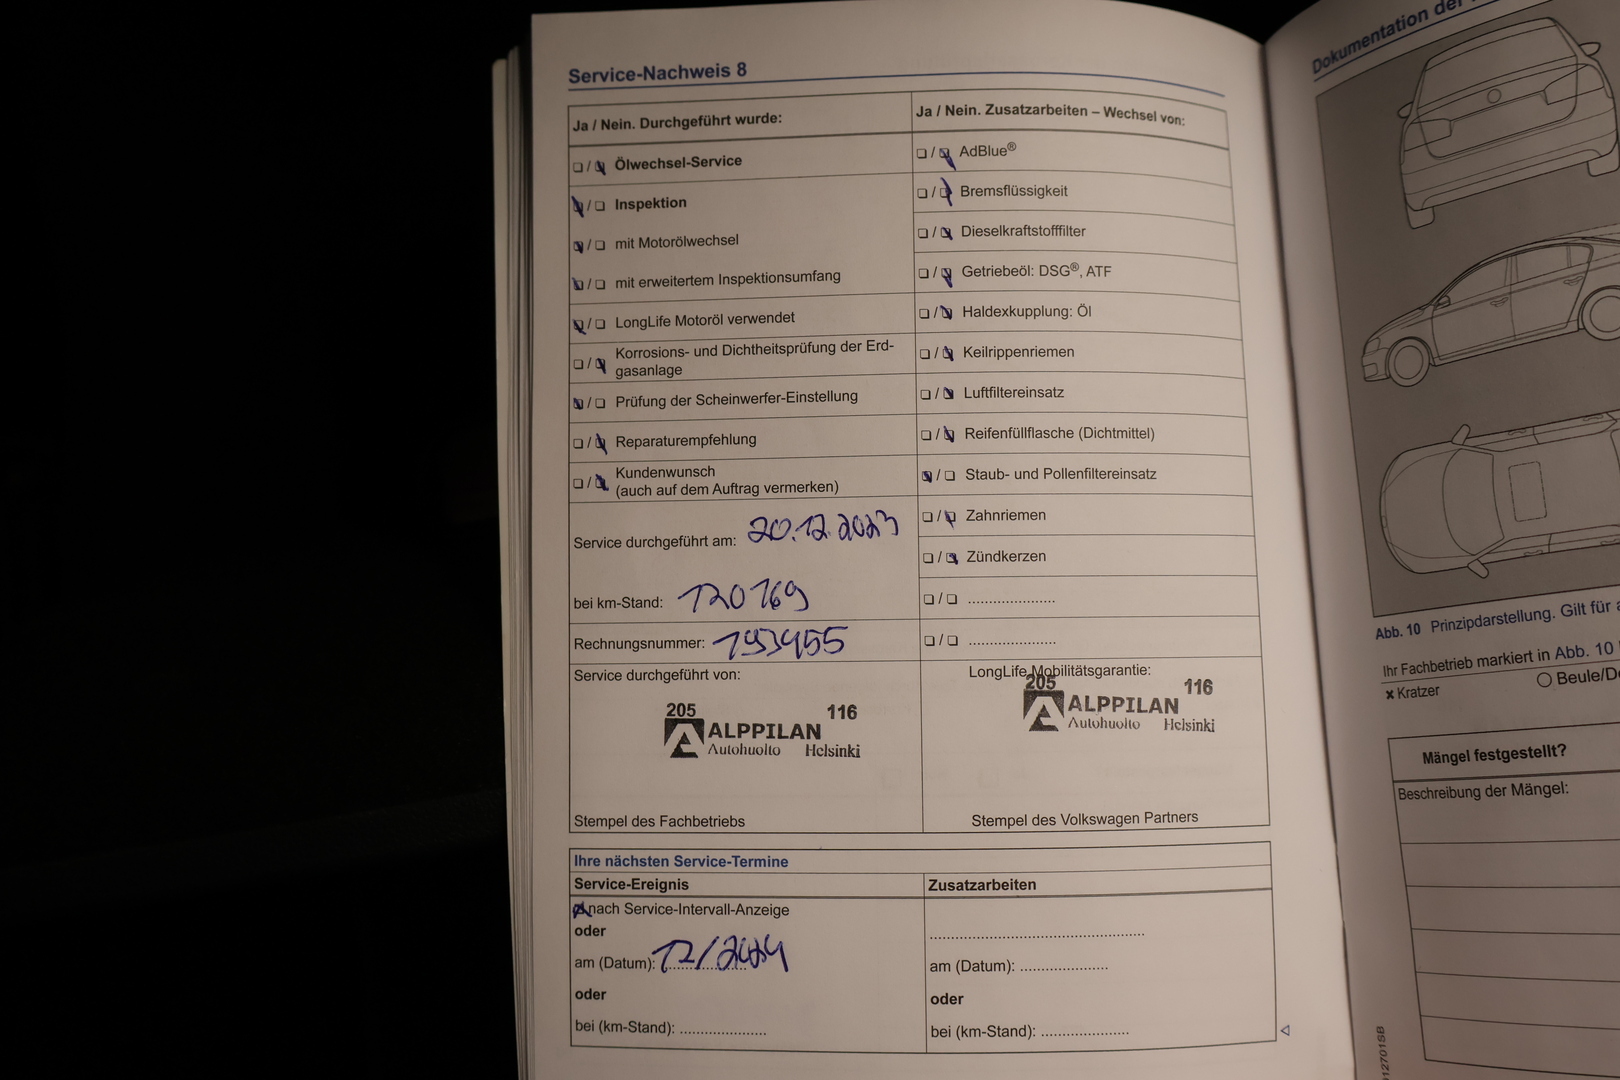 Service-Nachweis 8
Ja / Nein. Durchgeführt wurde:
❏ / ❏ Ölwechsel-Service
❏ / ❏ Inspektion
❏ / ❏ mit Motorölwechsel
❏ / ❏ mit erweitertem Inspektionsumfang
❏ / ❏ LongLife Motoröl verwendet
❏ / ❏ Korrosions- und Dichtheitsprüfung der Erd-
gasanlage
❏ / ❏ Prüfung der Scheinwerfer-Einstellung
❏ / ❏ Reparaturempfehlung
❏ / ❏ Kundenwunsch
(auch auf dem Auftrag vermerken)
Service durchgeführt am: 20.12.2023
bei km-Stand: 120169
Rechnungsnummer: 193455
Service durchgeführt von:
205 116
ALPPILAN
Autohuolto Helsinki
Stempel des Fachbetriebs
Ja / Nein. Zusatzarbeiten – Wechsel von:
❏ / ❏ AdBlue®
❏ / ❏ Bremsflüssigkeit
❏ / ❏ Dieselkraftstofffilter
❏ / ❏ Getriebeöl: DSG®, ATF
❏ / ❏ Haldexkupplung: Öl
❏ / ❏ Keilrippenriemen
❏ / ❏ Luftfiltereinsatz
❏ / ❏ Reifenfüllflasche (Dichtmittel)
❏ / ❏ Staub- und Pollenfiltereinsatz
❏ / ❏ Zahnriemen
❏ / ❏ Zündkerzen
❏ / ❏ .....................
❏ / ❏ .....................
LongLife Mobilitätsgarantie:
205 116
ALPPILAN
Autohuolto Helsinki
Stempel des Volkswagen Partners
Ihre nächsten Service-Termine
Service-Ereignis
❏ nach Service-Intervall-Anzeige
oder
am (Datum): 12/2024
oder
bei (km-Stand): .....................
Zusatzarbeiten
....................................................
am (Datum): .....................
oder
bei (km-Stand): .....................
Dokumentation der
Abb. 10 Prinzipdarstellung. Gilt für
Ihr Fachbetrieb markiert in Abb. 10
✖ Kratzer
○ Beule/
Mängel festgestellt?
Beschreibung der Mängel:
12701SB